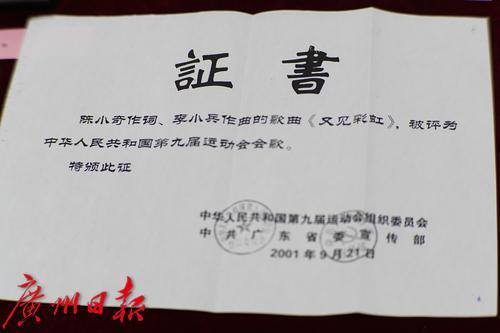 証書
陈小奇作词、李小兵作曲的歌曲《又见彩虹》,被评为
中华人民共和国第九届运动会会歌。
特颁此证
中华人民共和国第九届运动会组织委员会
中共广东省委宣传部
2001年9月21日
廣州日報